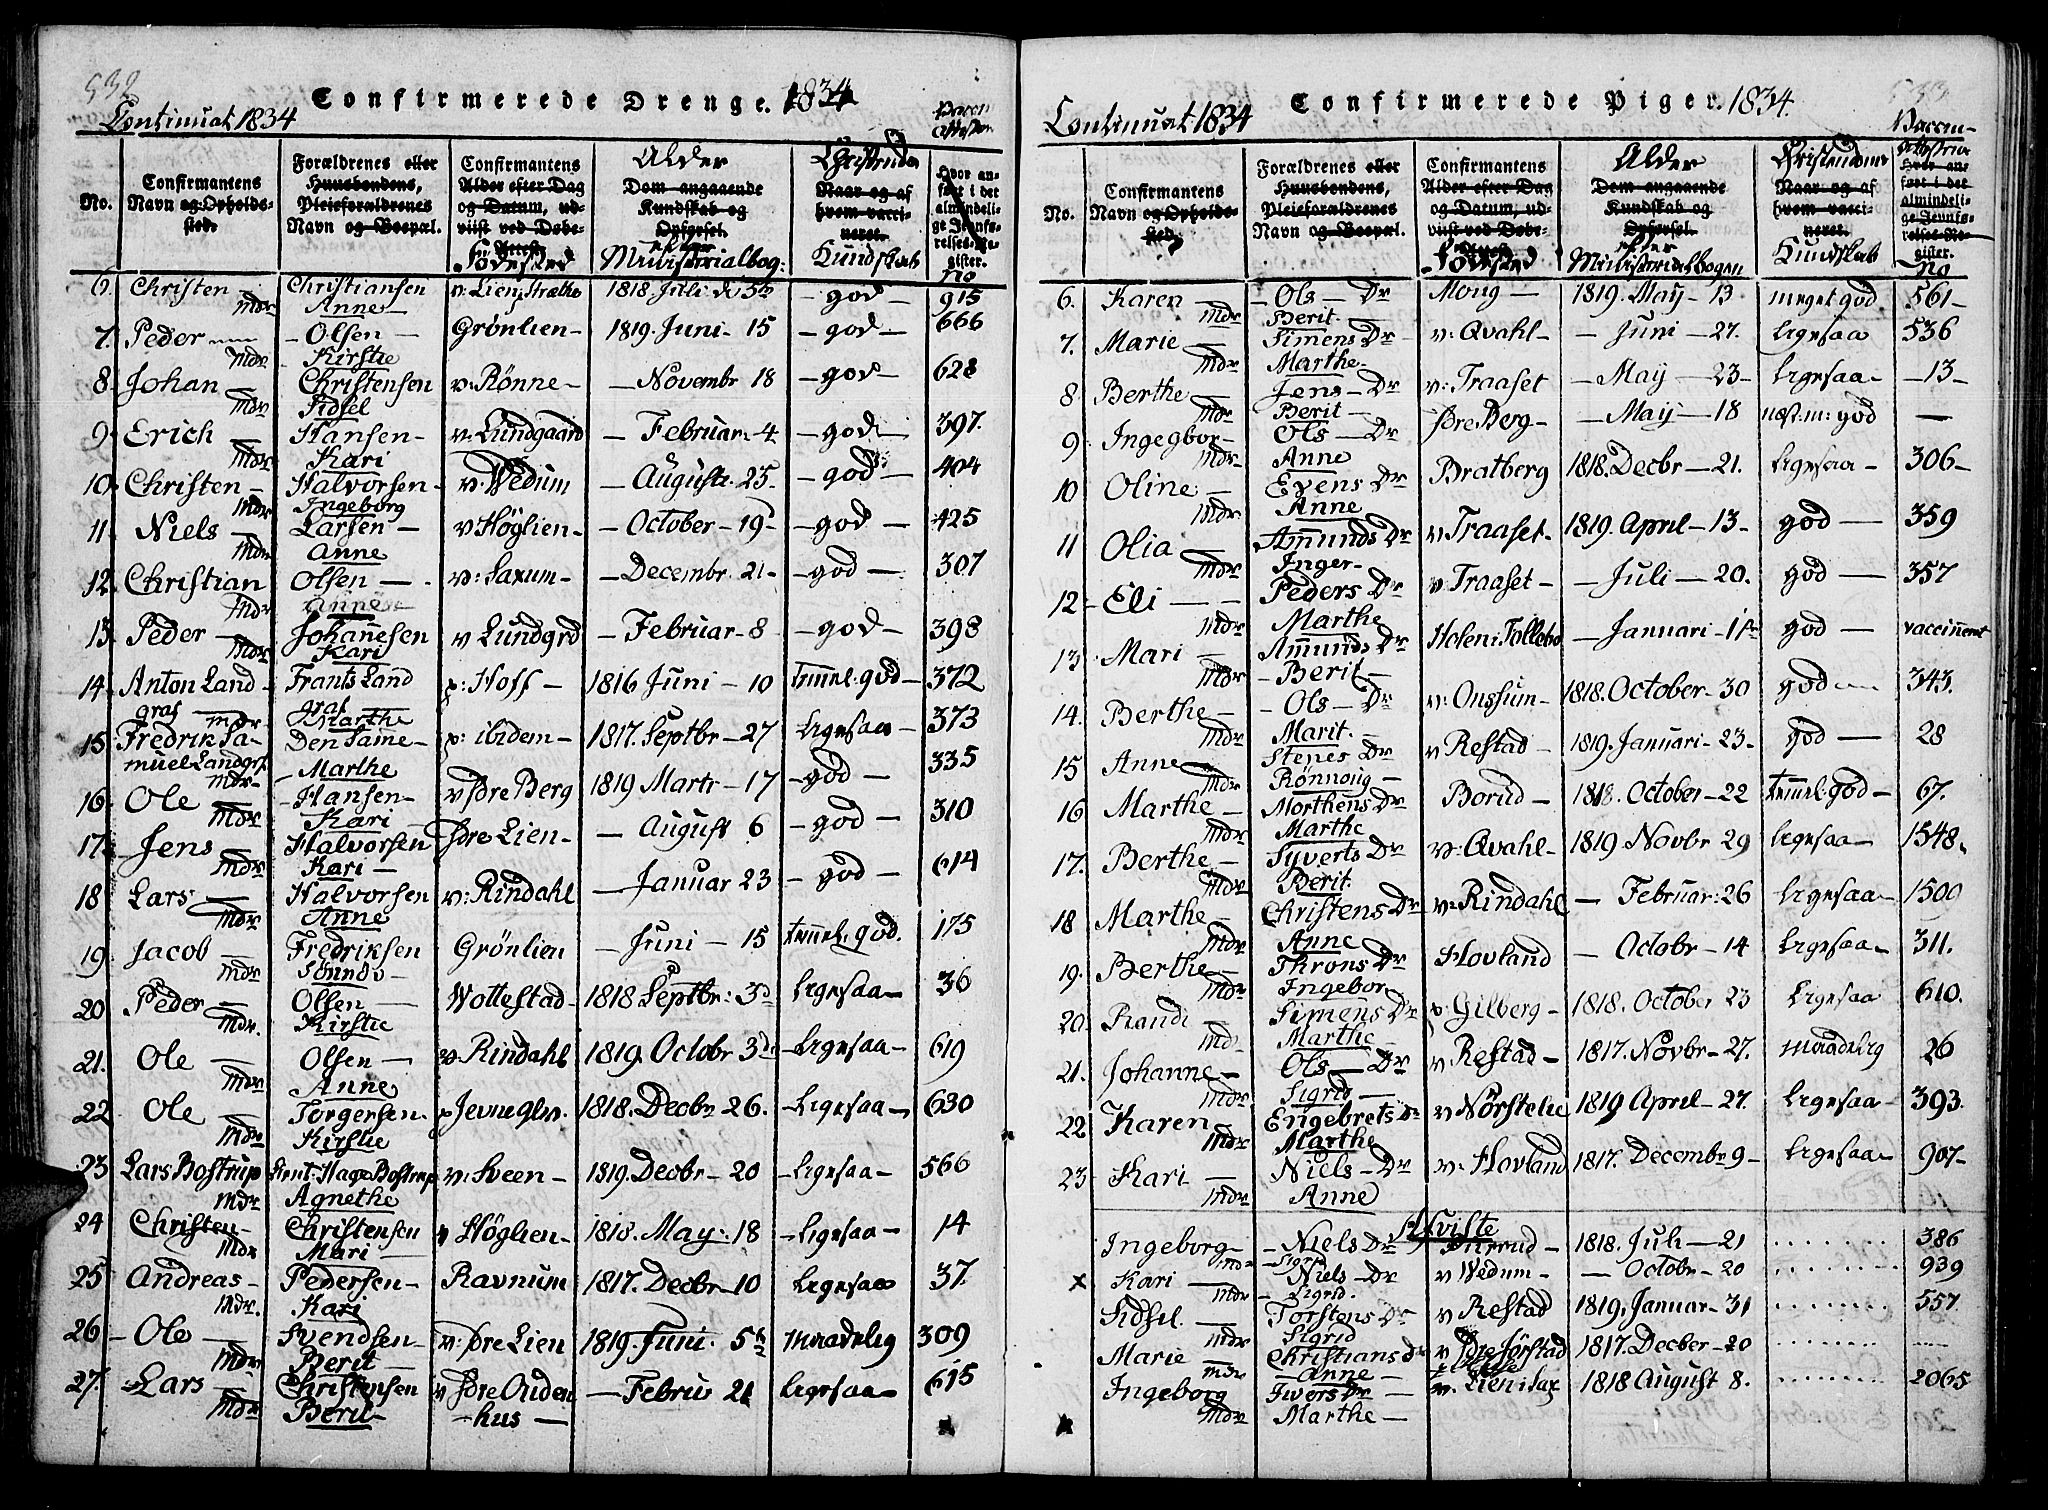 532
Confirmerede Drenge. 1834
Continuat 1834
No.
Confirmantens Navn og Opholdssted.
Forældrenes eller Huusbondens, Pleieforældrenes Navn og Boepæl.
Confirmantens Alder efter Dag og Datum, udviist ved Døbe-Attest. Fødested
Alder Dom angaaende Kundskab og Opførsel. efter Ministerialbog:
Christendom Naar og af hvem vaccineret. Kundskab
Hvor anført i det almindelige Jevnførelses-Register. No
6. Christen Christiansen v: Lien, 1818 Juli d 5te – god – 915
Mdr Anne
7. Peder – Olsen – Grönlien – 1819. Juni – 15 – god – 666
Mdr Kirstie
8. Johan – Christensen v: Rönne – – Novembr 18 – god – 628
Mdr Sidsel
9. Erich – Hansen – v: Lundgaard – Februar – 4 – god – 397.
Mdr Kari
10. Christen – Halvorsen – v: Wedum – August: 25 – god – 404
Mdr Ingeborg
11. Niels – Larsen – v Höglien – – October – 19 – god – 425
Mdr Anne
12. Christian Olsen – v: Saxum – – Decembr. 21 – god – 307
Mdr Anne
13. Peder – Johannesen v Lundgrd – Februar – 8 – god – 398
Mdr Kari
14. Anton Land- Frants Land p: Hoff – 1816 Juni – 10 temmel. god – 372
graf – mdr graf Marthe
15. Fredrik Sa- Den Same – p: ibidem – 1817. Septbr – 27 ligesaa – 373
muel Landgrf.
Mdr – Marthe
16. Ole – Hansen – v Sdre Berg 1819 Marti – 17 – god – 335
Mdr Kari –
17. Jens – Halvorsen Sdre Lien – – August 6 – god – 310
Mdr Kari –
18 Lars – Halvorsen v: Rindahl – Januar 23 – god – 614
Mdr Anne
19. Jacob – Fredriksen Grönlien – Juni – 15 temmel. god. 175
Mdr Sönnov –
20 Peder – Olsen – Wottestad – 1818 Septbr: 3d ligesaa – 36
Mdr. Kirstie
21. Ole – Olsen – v. Rindahl 1819. Octobr 3d – ligesaa – 619
Mdr Anne
22. Ole – Torgersen – v Jevneglv. 1818. Decbr 26. – ligesaa – 630
Mdr Kirstie
23 Lars Bostrup Hage Bostrup v: Sveen – 1819. Decbr – 20 – ligesaa – 566
Mdr Agnethe
24 Christen – Christensen v Höglien – 1818. May: 18 – ligesaa – 14
Mdr Mari –
25 Andreas – Pedersen – Ravnum 1817. Decbr – 10 ligesaa 37.
Mdr. Kari
26 – Ole – Svendsen – v: Sdre Lien 1819 Juni. 5te Maadelig 309
Mdr Berit –
27. Lars – Christensen v Sdre Ouden – Februr 21 ligesaa – 615
Mdr Berit – hus –
Confirmerede Piger. 1834.
Continuat 1834
No.
Confirmantens Navn og Opholdssted.
Forældrenes eller Huusbondens, Pleieforældrenes Navn og Boepæl.
Confirmantens Alder efter Dag og Datum, udviist ved Døbe-Attest. Fødested
Alder Dom angaaende Kundskab og Opførsel. efter Ministerialbogen
Christendoms Naar og af hvem vaccineret. Kundskab
Hvor anført i det almindelige Jevnførelses-Register. No
6. Karen – Ols – Dr Moug – 1819. May – 13 meget god 561 –
Mdr Berit –
7. Marie – Simens Dr v: Qvahl – – Juni – 27. ligesaa 536
Mdr Marthe
8 Berthe – Jens – Dr v: Traaset – May – 23 – ligesaa – – 13 –
Mdr Berit –
9 Ingegbor – Ols – Dr Sdre Berg – – May – 18 næst. m: god –
Mdr – Anne
10 Oline – Evens Dr Bratberg 1818. Decbr – 21. ligesaa – 306 –
Mdr Anne
11 Olia – Amunds Dr v: Traaset – 1819. April – 13 – god – 359
Mdr Inger –
12 – Eli – – Peders Dr v: Traaset – – Juli – 20. god – 357
Mdr Marthe
13 Mari – Amunds Dr Holen i Follebo – Januari – 1ste god – vaccineret
Mdr – Berit –
14. Berthe – – Ols – Dr v: Onssum – 1818. October – 30 god – 343.
Mdr Marit –
15 Anne – Stenes Dr v Restad – 1819. Januari – 23 – god – 28
Mdr Rönnoug –
16 Marthe – Morthens Dr Borud – 1818. October – 22 temmel: god – 67.
Mdr Marthe
17. Berthe – Syverts Dr v: Qvahl – 1819 Novbr 29 ligesaa – 1548.
Mdr Berit
18 Marthe – Christens Dr v: Rindahl – Februar: 26 ligesaa – 1500
Mdr Anne
19. Berthe – Throns Dr Hovland – Octobr – 14 ligesaa – 311.
Mdr Ingebor
20 Randi – Simens Dr v: Gilberg – 1818. October 23 ligesaa 610.
Md. Marthe –
21. Johanne – Ols – Dr v: Restad – 1817. Novbr – 27. maadelig 26
Mdr Sigrid –
22 Karen Engebrets Dr v Nörstelie 1819 April – 27. ligesaa – 393.
Mdr Marthe
23 Kari – Niels – Dr v: Hovland 1817. Decembr 9 – ligesaa – 907 –
Mdr Anne
Afviste
Ingeborg – – Niels Dr 1818. Juli – 21 ....... 386
Mdr – Sigrd
x Kari – Niels – Dr v Wedum – – Octobr – 20 ....... 939
Mdr – Sigrid.
Sidsel – Torstens Dr v Restad 1819. Januar – 31 ....... 557.
Mdr Sigrid
Marie – Christians Dr v Sdre Jörstad 1817. Decber – 20 ....... –
Mdr – Anne –
Ingeborg Iwers Dr v. Lien i Sax 1818 August 8. ....... 2065
Mdr Marthe –